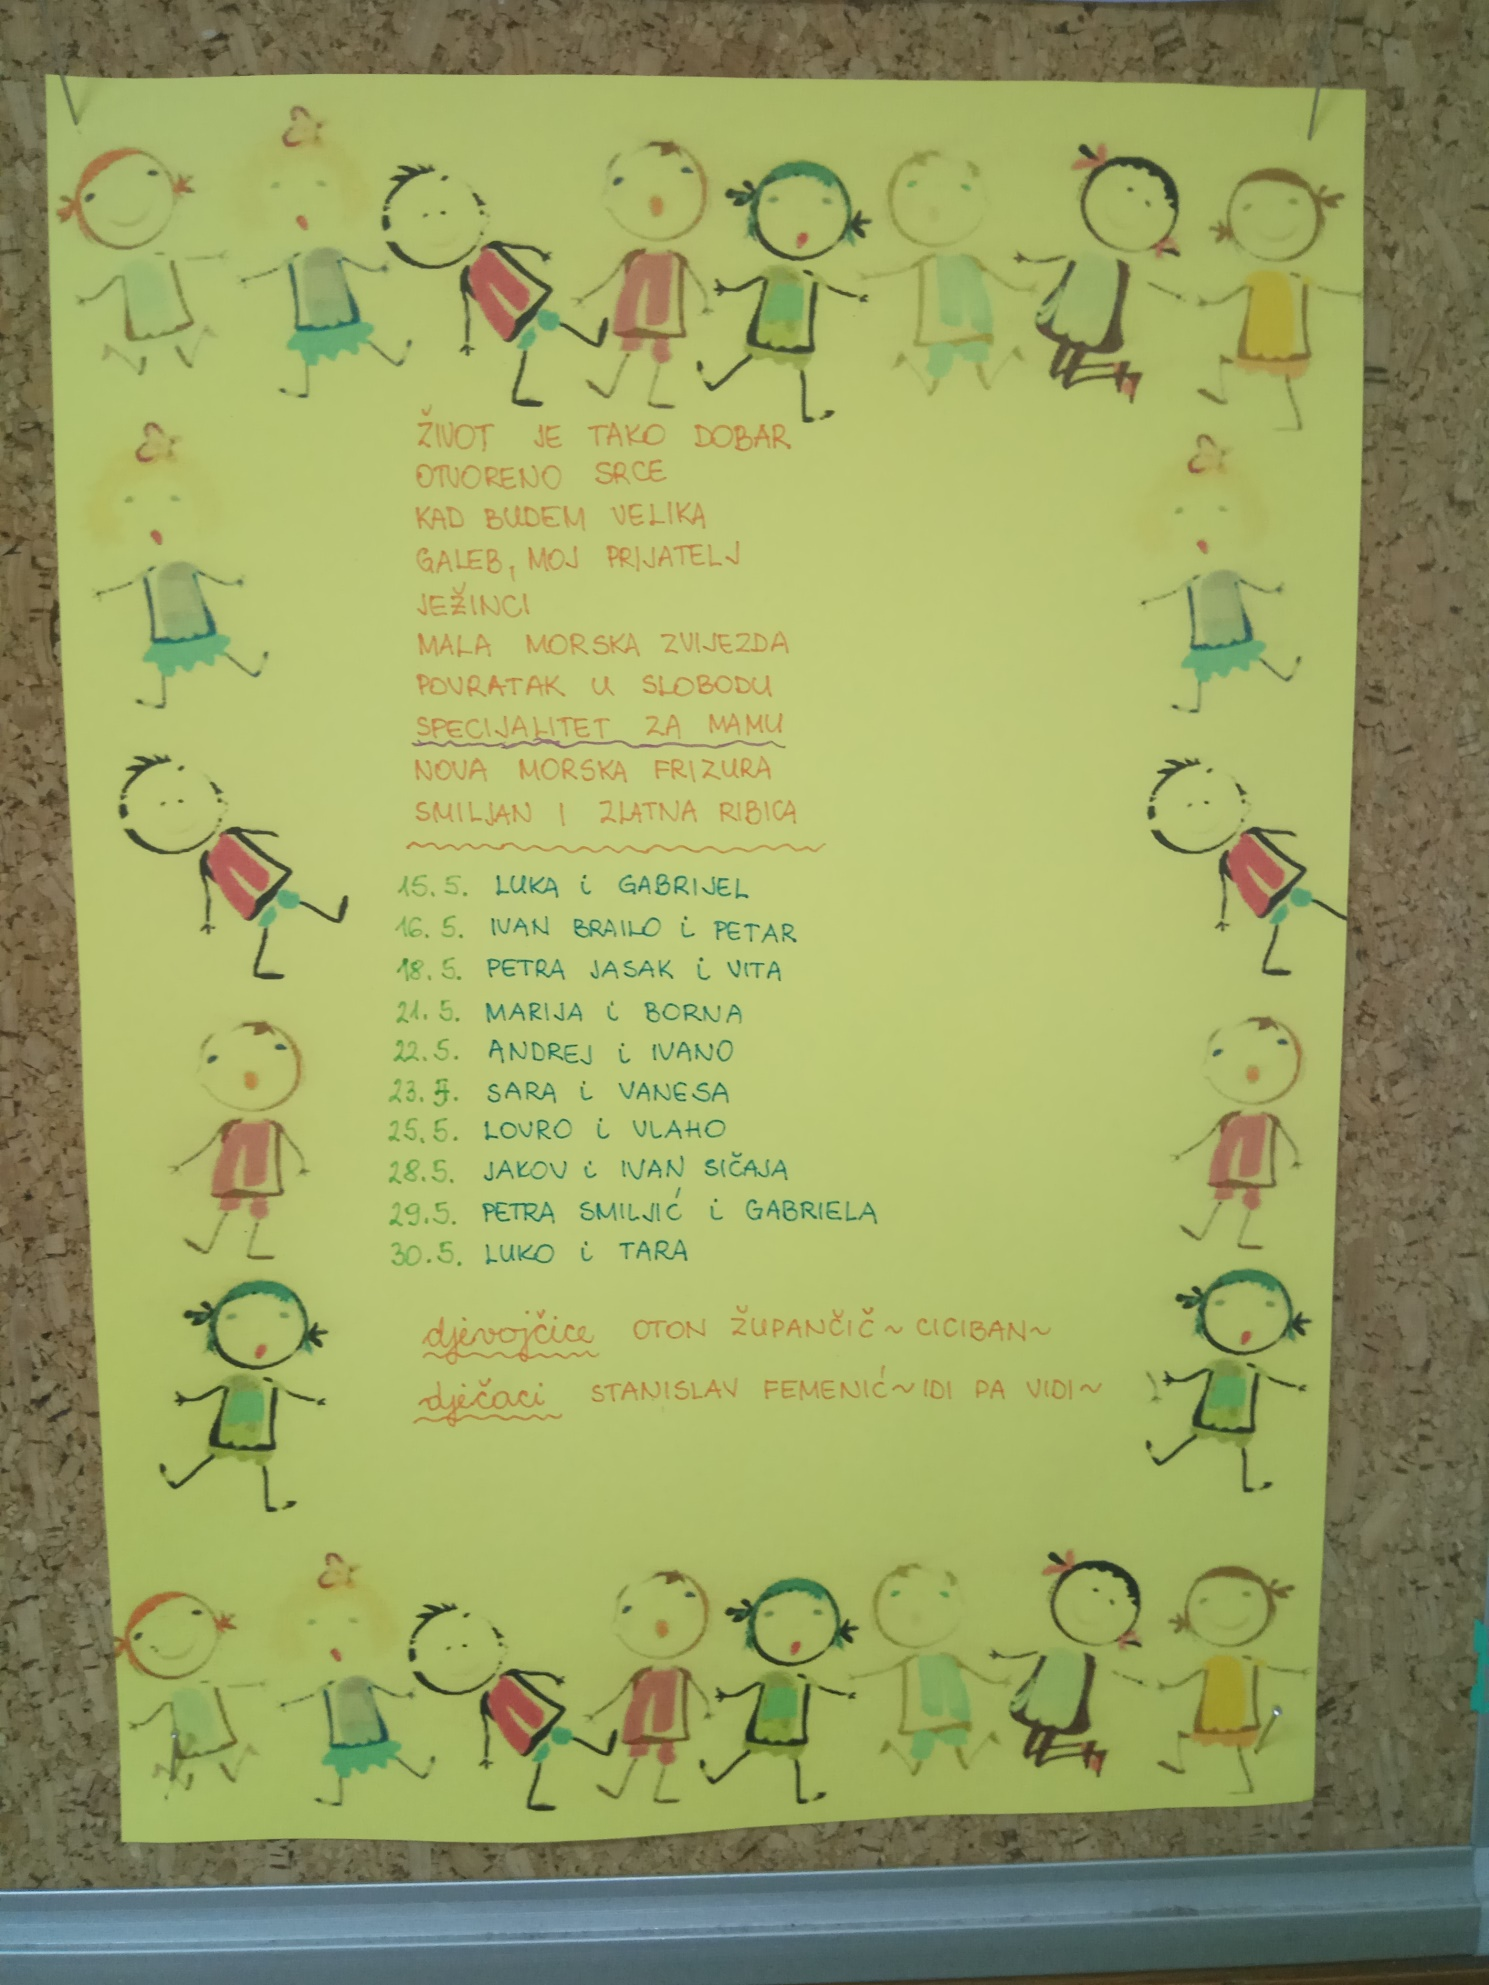 ŽIVOT JE TAKO DOBAR
OTVORENO SRCE
KAD BUDEM VELIKA
GALEB, MOJ PRIJATELJ
JEŽINCI
MALA MORSKA ZVIJEZDA
POVRATAK U SLOBODU
SPECIJALITET ZA MAMU
NOVA MORSKA FRIZURA
SMILJAN I ZLATNA RIBICA
15.5. LUKA i GABRIJEL
16.5. IVAN BRAILO i PETAR
18.5. PETRA JASAK i VITA
21.5. MARIJA i BORNA
22.5. ANDREJ i IVANO
23.5. SARA i VANESA
25.5. LOVRO i VLAHO
28.5. JAKOV i IVAN SIČAJA
29.5. PETRA SMILJIĆ i GABRIELA
30.5. LUKO i TARA
djevojčice OTON ŽUPANČIČ ~ CICIBAN ~
dječaci STANISLAV FEMENIĆ ~ IDI PA VIDI ~